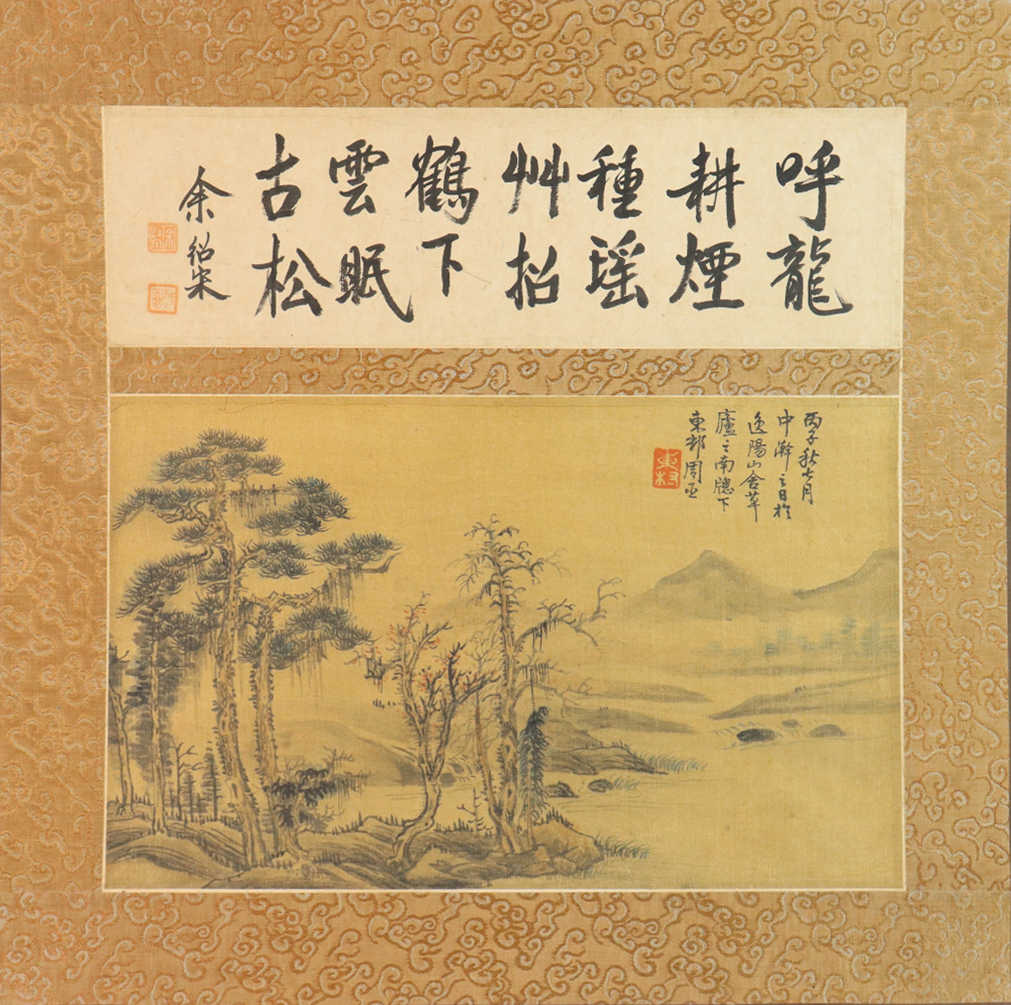 呼龍
耕煙
種瑶
艸招
鶴下
雲眠
古松
余紹宋
丙子秋七月
中澣之日於
逸陽山舍草
廬之南牕下
東邨周
東村